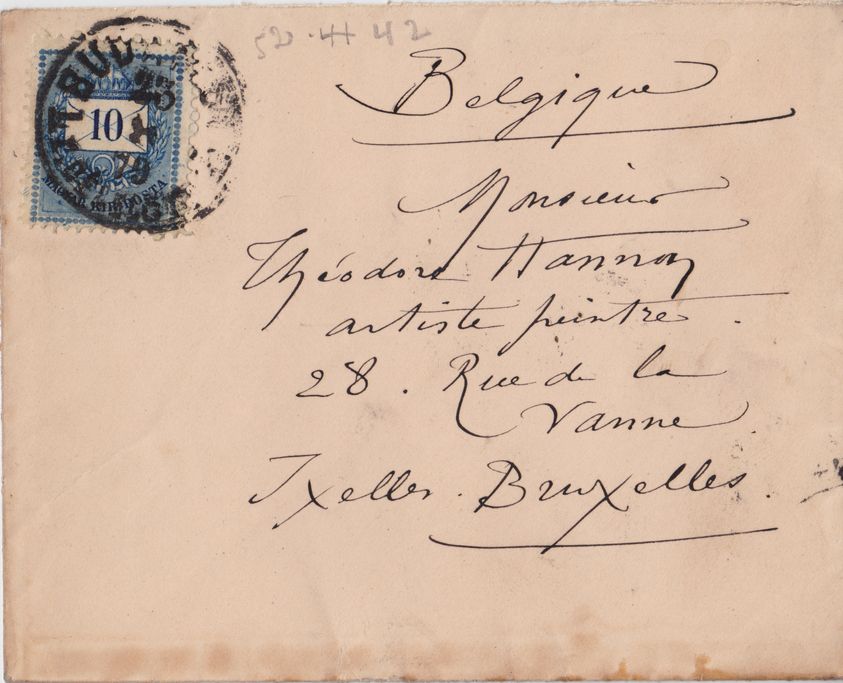 52 · H 42
Belgique
BUD
10
79
MAGYAR KIR. POSTA
Monsieur
Théodore Hannon
artiste peintre.
28. Rue de la
Vanne
Ixelles. Bruxelles.